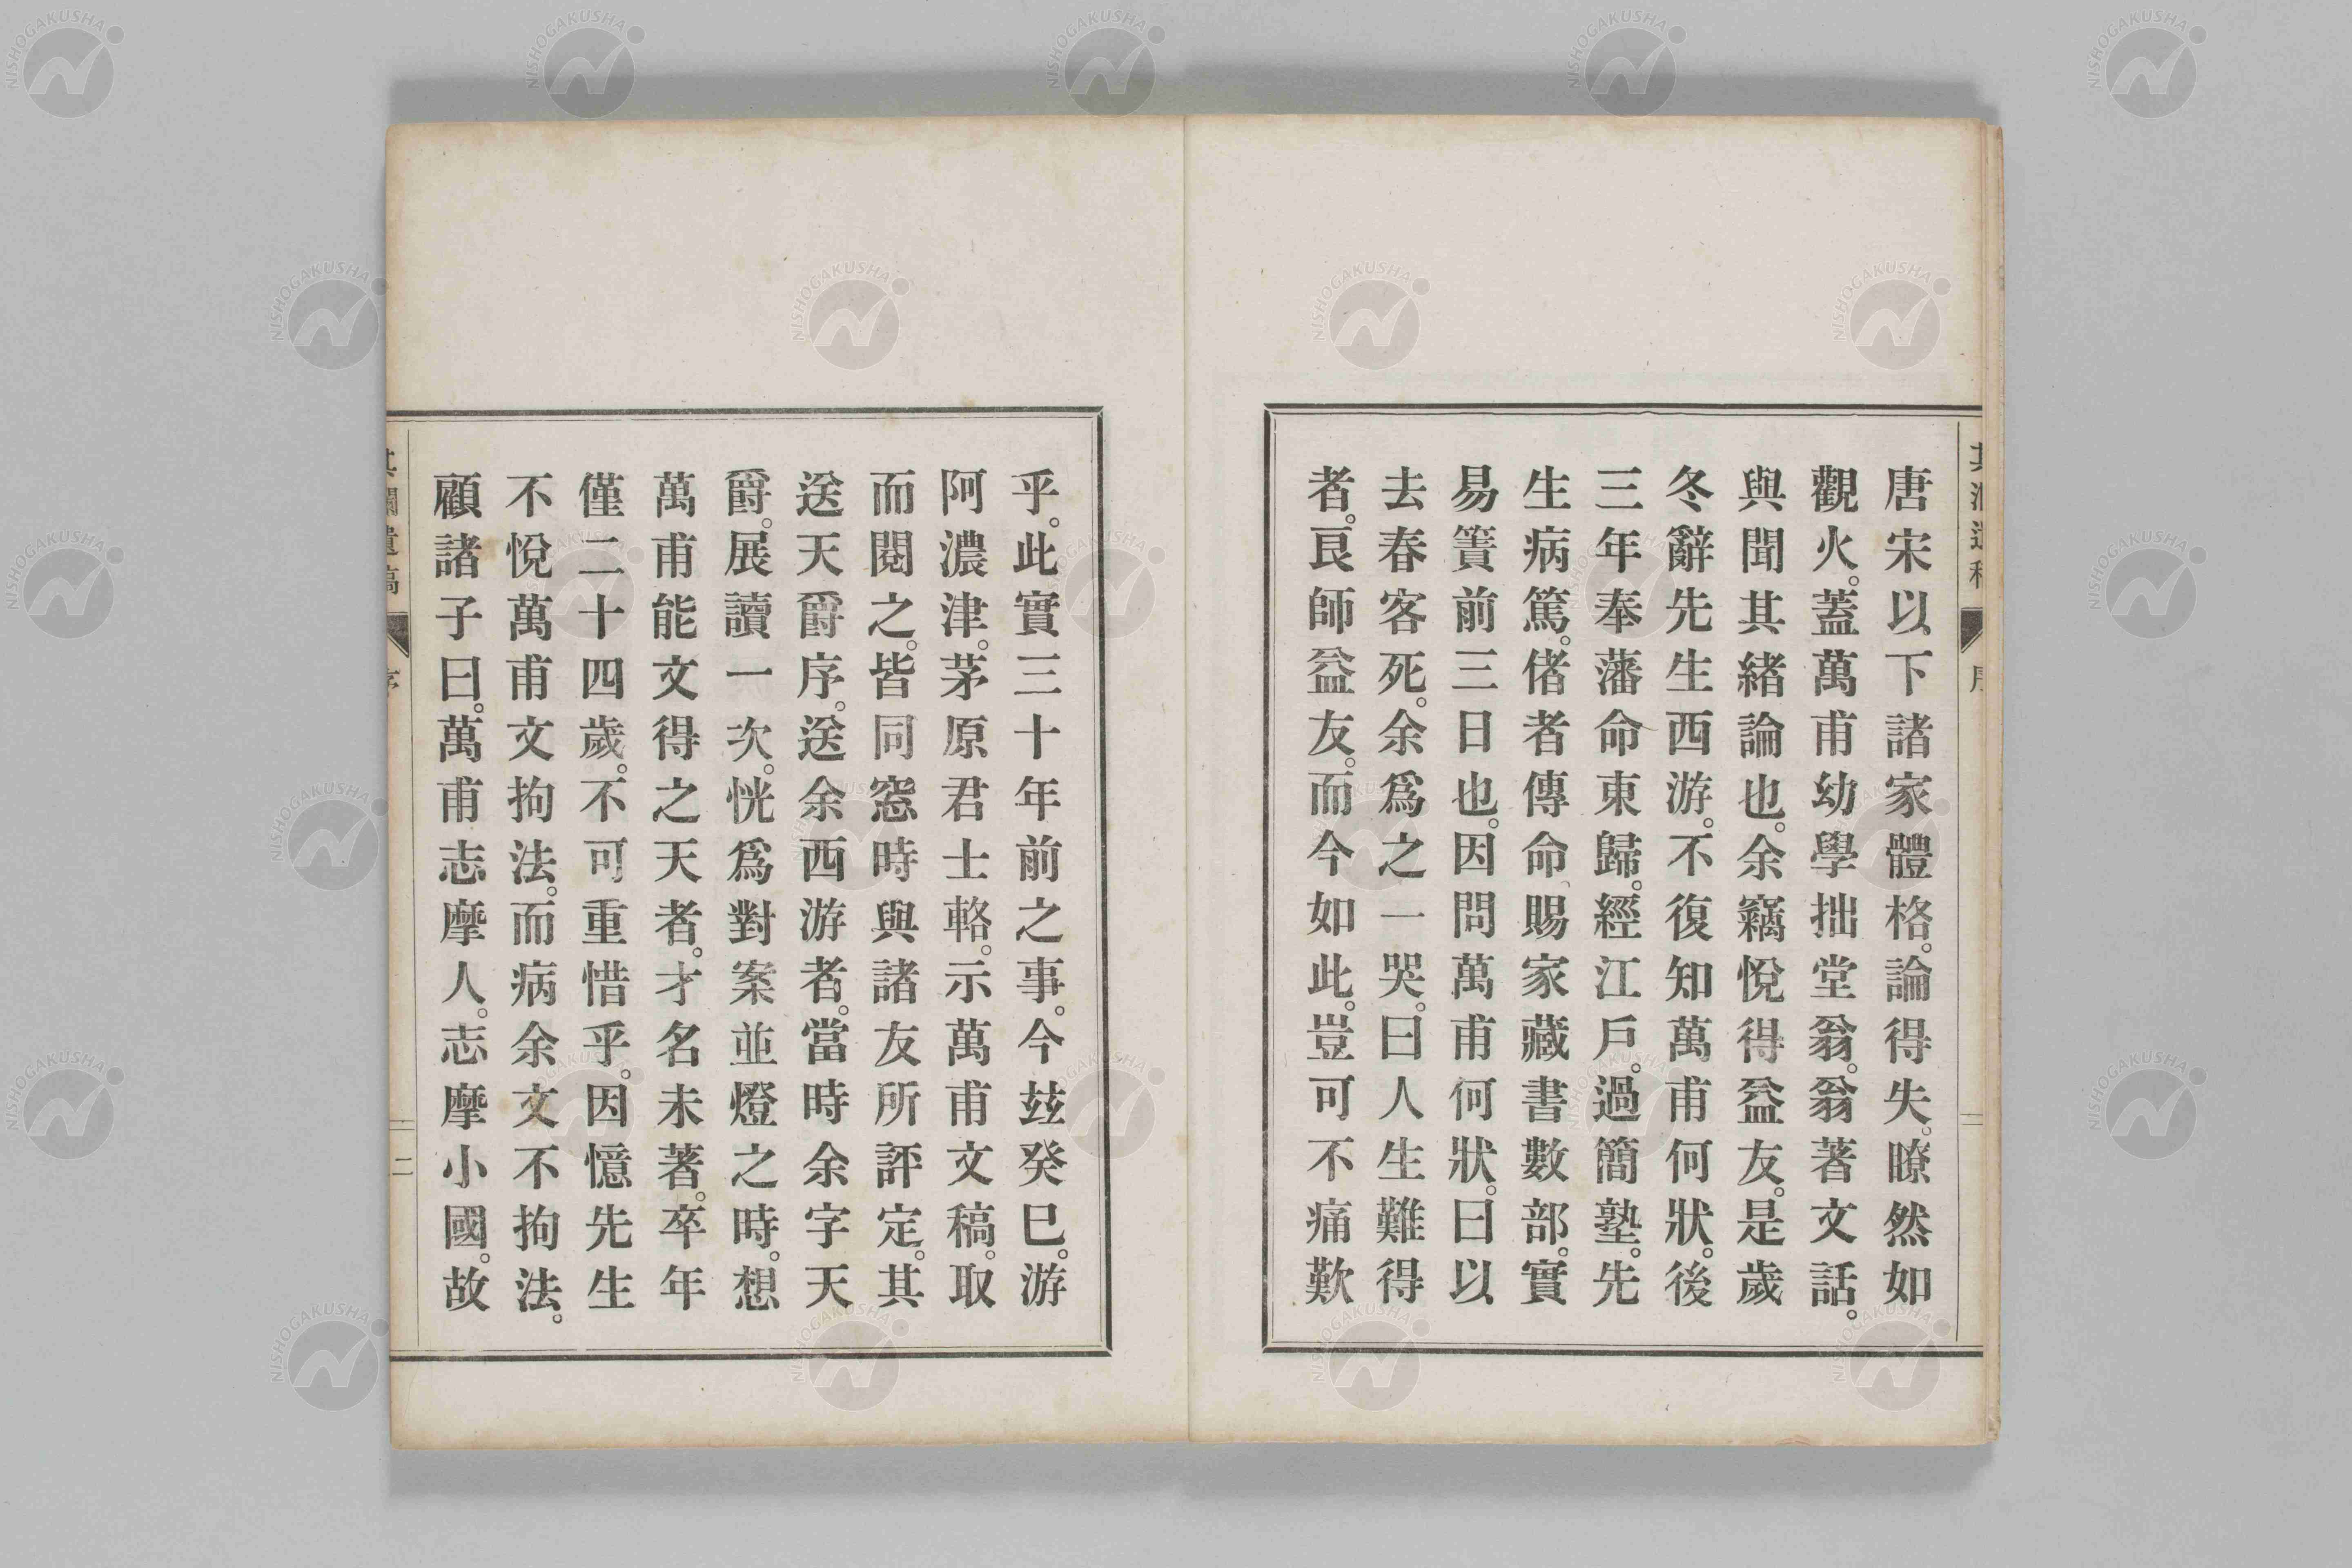 唐宋以下諸家體格。論得失。瞭然如
觀火。蓋萬甫幼學拙堂翁。翁著文話。
與聞其緒論也。余竊悅得益友。是歲
冬辭先生西游。不復知萬甫何狀。後
三年奉藩命東歸。經江戶。過簡塾。先
生病篤。偖者傳命賜家藏書數部。實
易簀前三日也。因問萬甫何狀。曰以
去春客死。余爲之一哭。曰人生難得
者。良師益友。而今如此。豈可不痛歎
乎。此實三十年前之事。今玆癸巳。游
阿濃津。茅原君士輅。示萬甫文稿。取
而閱之。皆同窓時與諸友所評定。其
送天爵序。送余西游者。當時余字天
爵。展讀一次。恍爲對案並燈之時。想
萬甫能文得之天者。才名未著。卒年
僅二十四歲。不可重惜乎。因憶先生
不悅萬甫文拘法。而病余文不拘法。
顧諸子曰。萬甫志摩人。志摩小國。故
序
二
NISHOGAKUSHA